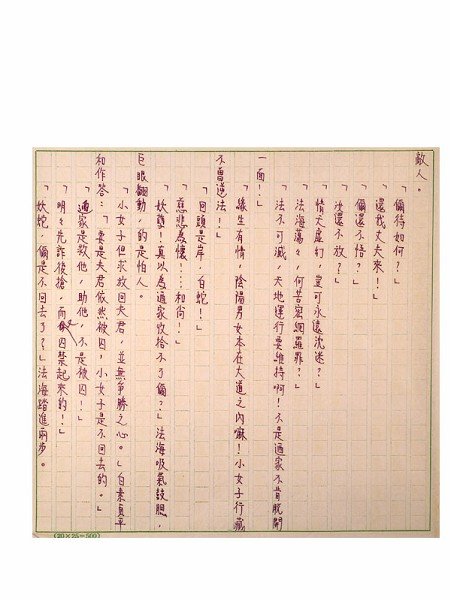 敵人。
「儞待如何？」
「還我丈夫來！」
「儞還不悟？」
「汝還不放？」
「情天虛幻，豈可永遠沈迷？」
「法海蕩々，何苦密網羅罪？？」
「法不可滅，天地運行要維持啊！不是洒家不肯脫開
一面！」
「緣生有情，陰陽男女本在大道之內嘛！小女子行藏
不曾違法！」
「回頭是岸，白蛇！」
「慈悲為懷！……和尚！」
「妖孽！真以為洒家收拾不了儞？」法海吸氣鼓腮，
巨眼翻動，的是怕人。
「小女子但求放回夫君，並無爭勝之心。」白素真平
和作答：「要是夫君依然被囚，小女子是不回去的。」
「洒家是救他，助他，不是被囚！」
「明々先詐後搶，而又囚禁起來的！」
「妖蛇，儞是不回去了？」法海踏進兩步。
(20×25=500)